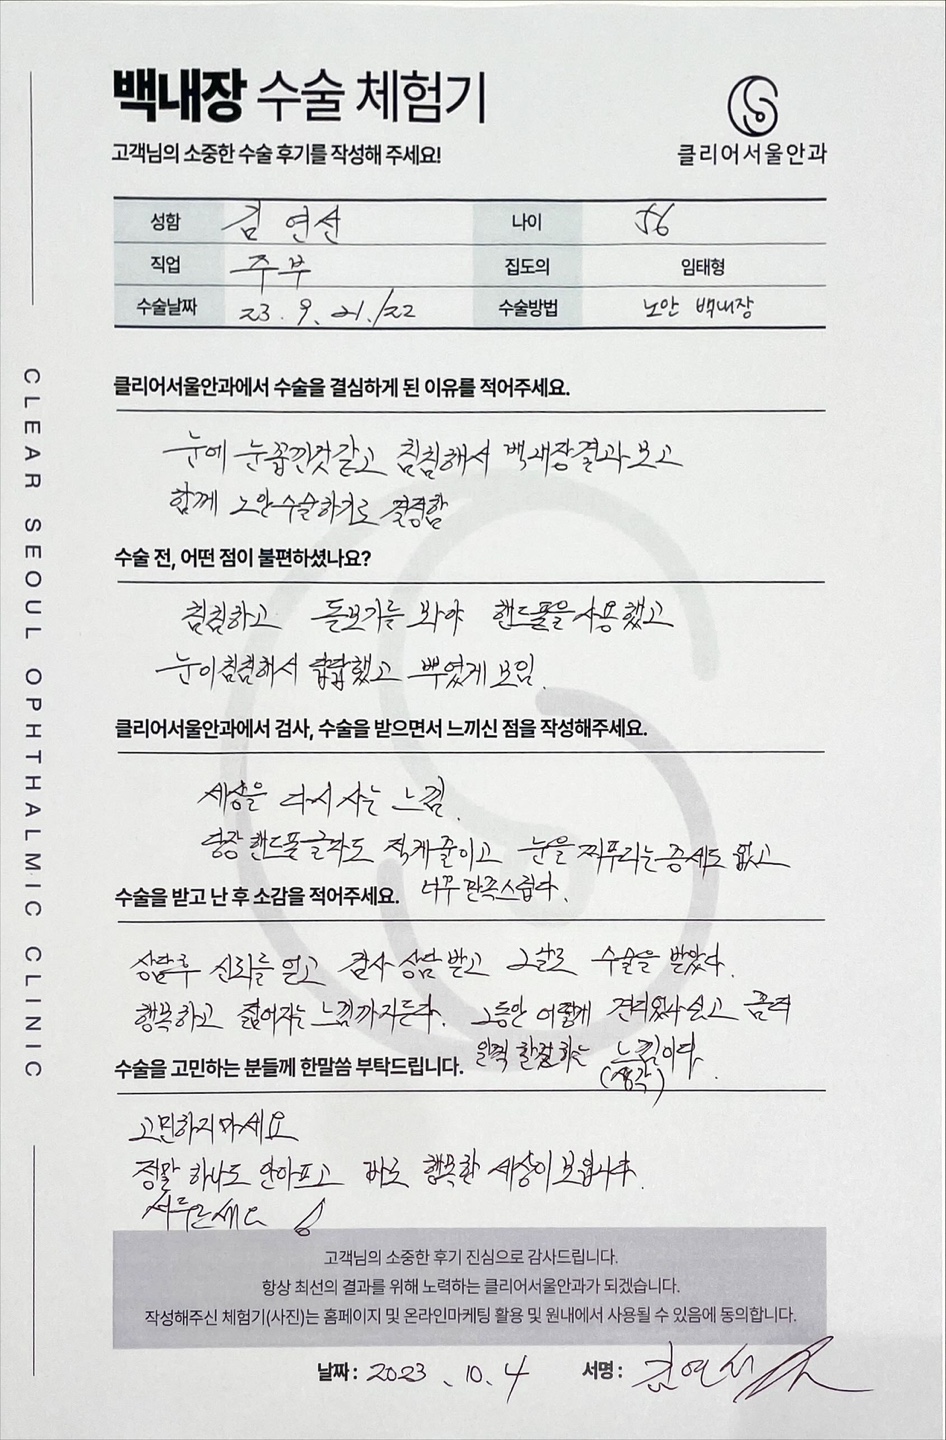 백내장 수술 체험기
고객님의 소중한 수술 후기를 작성해 주세요!
클리어서울안과
성함 김 연선 나이 56
직업 주부 집도의 임태형
수술날짜 23. 9. 21./22 수술방법 노안 백내장
CLEAR SEOUL OPHTHALMIC CLINIC
클리어서울안과에서 수술을 결심하게 된 이유를 적어주세요.
눈에 눈꼽낀것같고 침침해서 백내장결과보고
함께 노안수술하기로 결정함
수술 전, 어떤 점이 불편하셨나요?
침침하고 돋보기를 봐야 핸드폰을 사용했고
눈이침침해서 답답했고 뿌옇게 보임.
클리어서울안과에서 검사, 수술을 받으면서 느끼신 점을 작성해주세요.
세상을 다시 사는 느낌.
당장 핸드폰글자도 작게줄이고 눈을 찌푸리는증세도 없고
너무 만족스럽다.
수술을 받고 난 후 소감을 적어주세요.
상담후 신뢰를 얻고 검사 상담받고 그날로 수술을 받았다.
행복하고 젊어지는 느낌까지든다. 그동안 어떻게 견뎌왔나싶고 좀더
일찍 할걸하는 느낌이다.
(생각)
수술을 고민하는 분들께 한말씀 부탁드립니다.
고민하지마세요
정말 하나도 안아프고 바로 행복한 세상이 보입니다.
서두르세요
고객님의 소중한 후기 진심으로 감사드립니다.
항상 최선의 결과를 위해 노력하는 클리어서울안과가 되겠습니다.
작성해주신 체험기(사진)는 홈페이지 및 온라인마케팅 활용 및 원내에서 사용될 수 있음에 동의합니다.
날짜 : 2023. 10. 4 서명 : 김연선